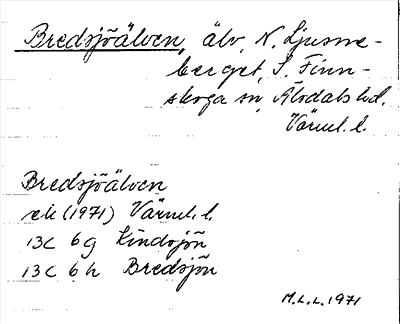 Bredsjöälven, älv, N. Ljusne-
berget, S. Finn-
skoga sn, Älvdals hd.
Värml. l.
Bredsjöälven
ek (1971) Värml. l.
13C 6g Kindsjön
13C 6h Bredsjön
M.L.L. 1971